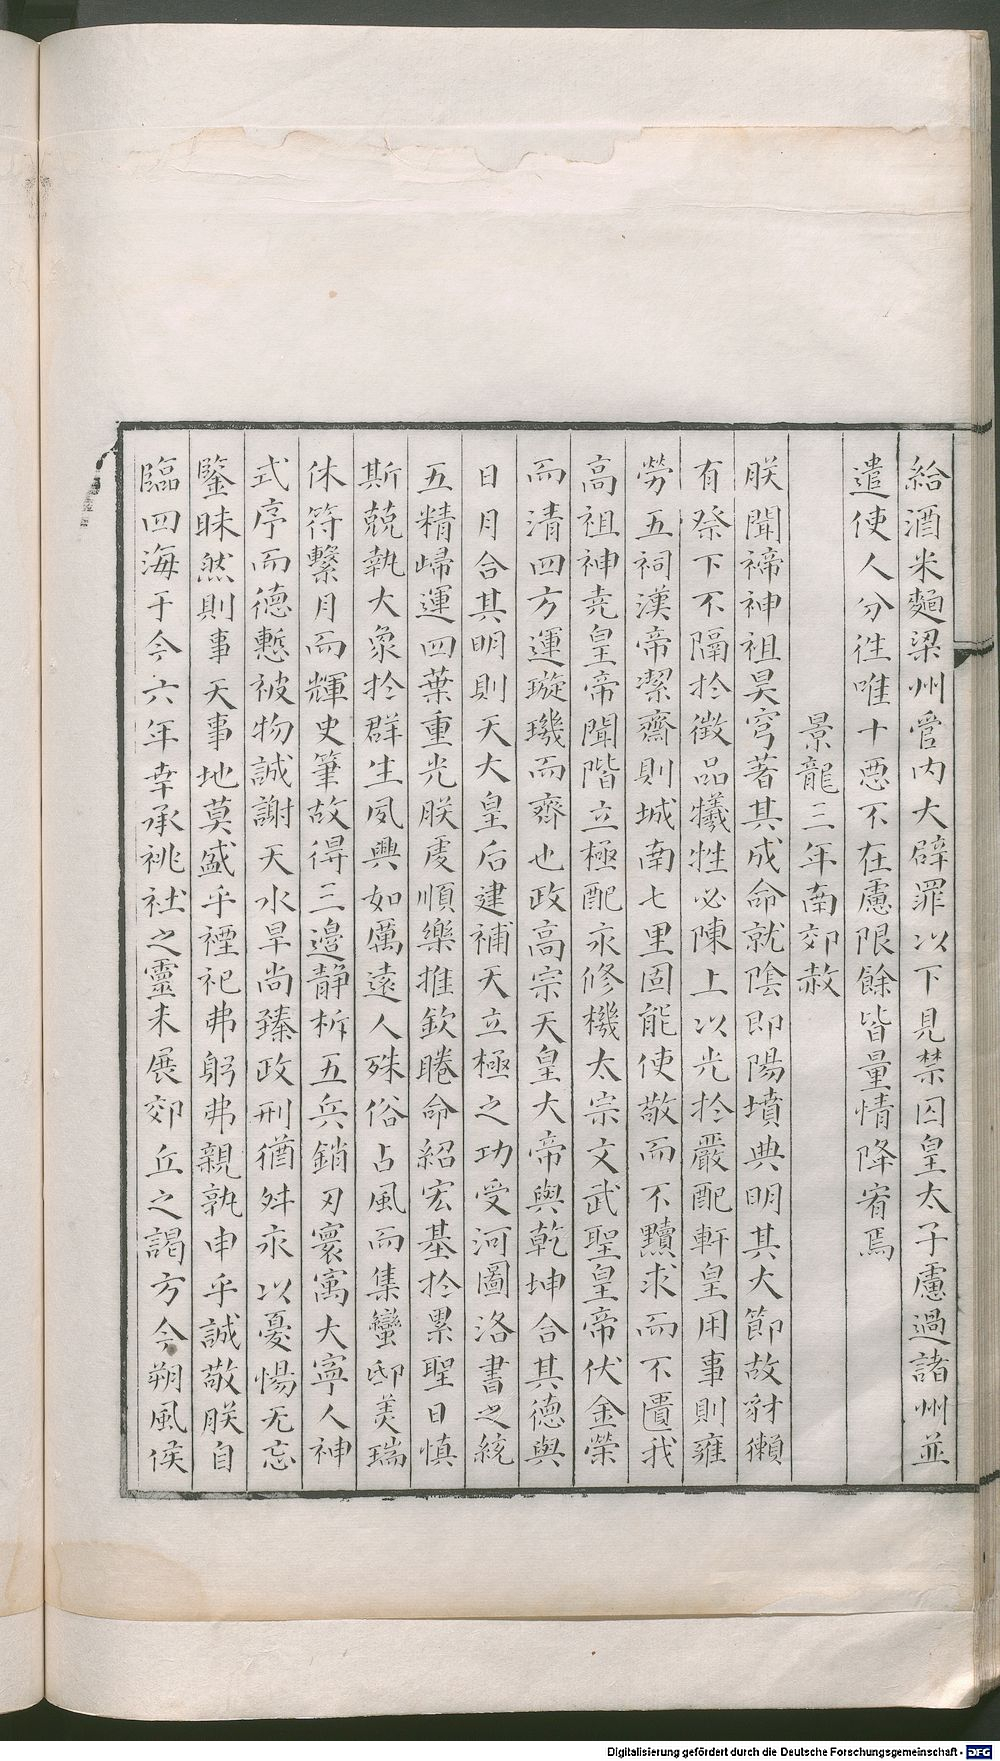 給酒米麵梁州管内大辟罪以下見禁囚皇太子慮過諸州並
遣使人分徃唯十惡不在慮限餘皆量情降宥焉
景龍三年南郊赦
朕聞禘神祖昊穹著其成命就陰即陽墳典明其大節故豺獺
有祭下不隔於徵品犧牲必陳上以光於嚴配軒皇用事則雍
勞五祠漢帝潔齋則城南七里固能使敬而不黷求而不匱我
高祖神尭皇帝闡階立極配永修機太宗文武聖皇帝伏金榮
而清四方運璇璣而齊也政高宗天皇大帝與乾坤合其德與
日月合其明則天大皇后建補天立極之功受河圖洛書之統
五精歸運四葉重光朕虔順樂推欽睠命紹宏基於累聖日慎
斯兢執大象於群生夙興如厲遠人殊俗占風而集蠻邸羙瑞
休符繫月而輝史筆故得三邊静柝五兵銷刃寰寓大寧人神
式序而德慙被物誠謝天水旱尚臻政刑猶舛永以憂惕无忘
鑒昧然則事天事地莫盛乎禋祀弗躬弗親孰申乎誠敬朕自
臨四海于今六年幸承祧社之靈未展郊丘之謁方今朔風候
Digitalisierung gefördert durch die Deutsche Forschungsgemeinschaft - DFG